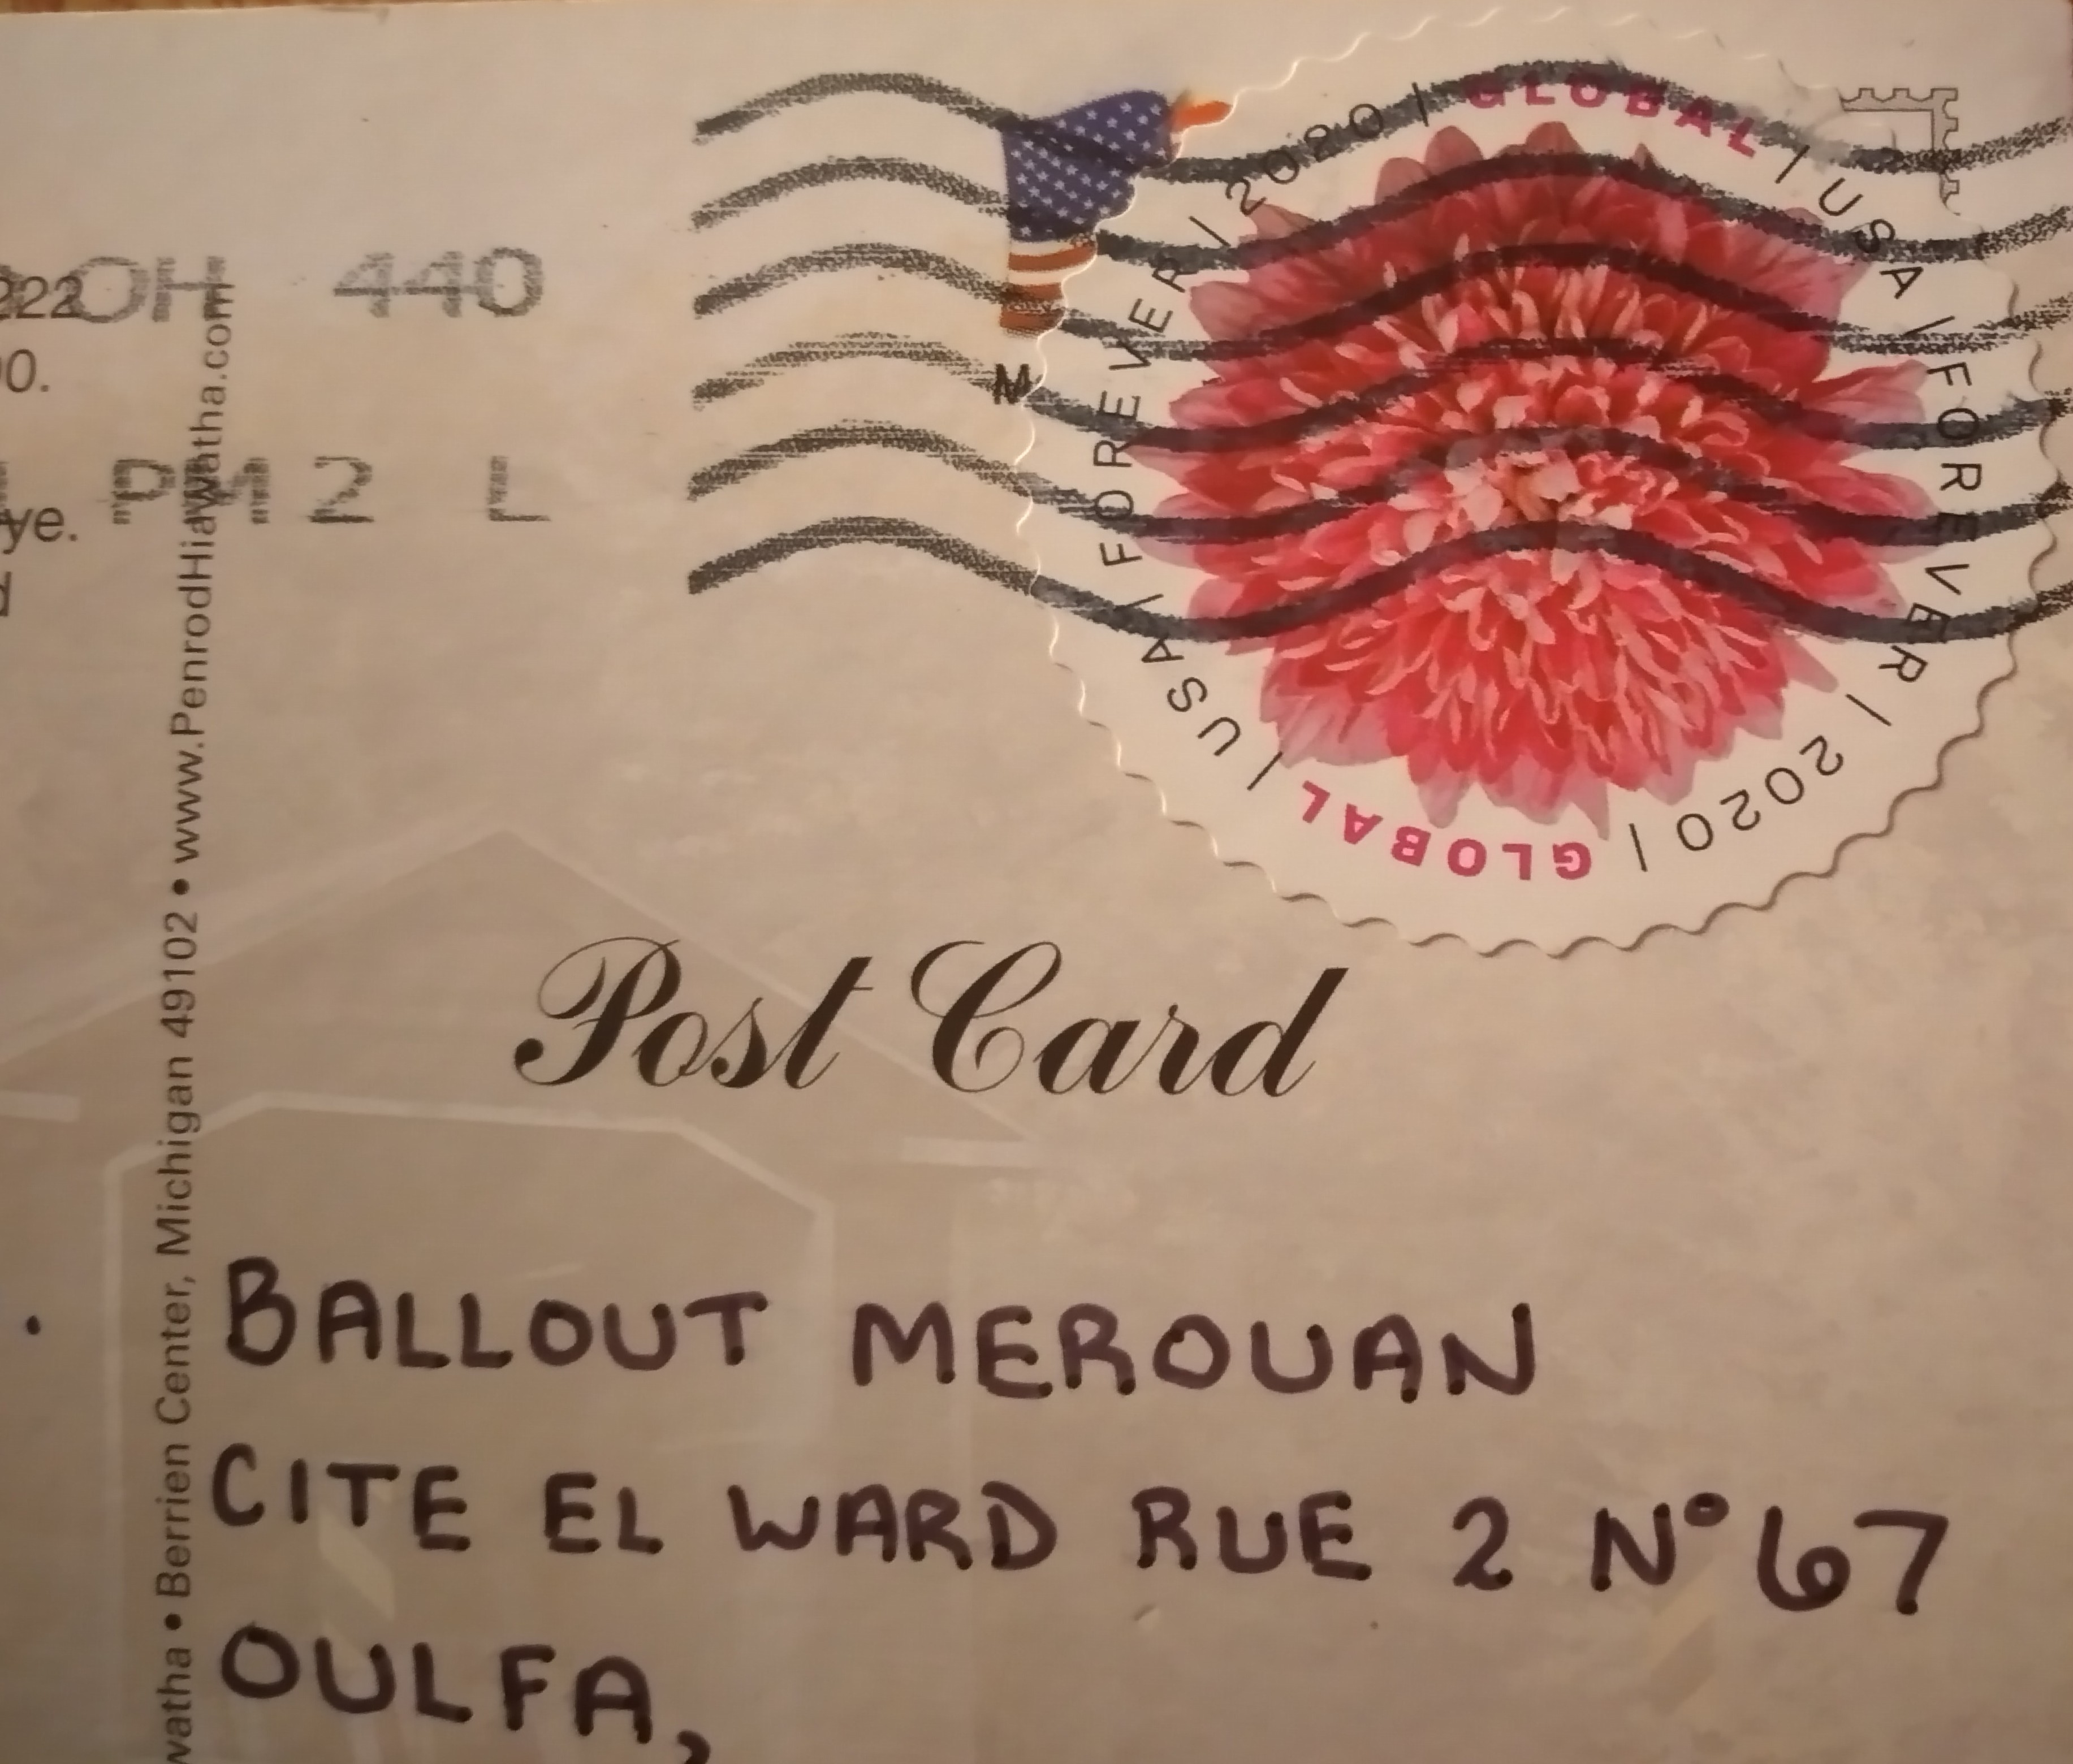 GLOBAL | USA | FOREVER | 2020 | GLOBAL | USA | FOREVER | 2020 |
222
OH 440
0.
M
PM 2 L
ye.
Post Card
watha • Berrien Center, Michigan 49102 • www.PenrodHiawatha.com
BALLOUT MEROUAN
CITE EL WARD RUE 2 N° 67
OULFA,